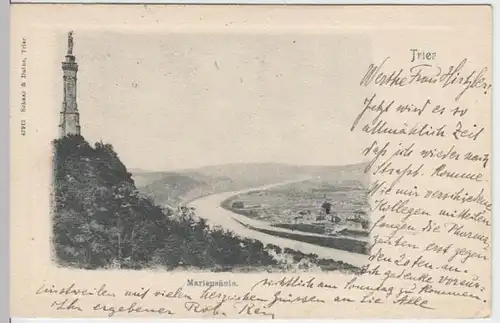 Trier
Werthe Frau
Jetzt wird es so
allmählich Zeit
daß ich wieder nach
Straßb. komme.
Wie mir verschiedene
Kollegen mitteilen
fangen die
erst gegen
den 20ten an.
Ich gedenke voraus-
sichtlich am Sonntag zu kommen.
Einstweilen mit vielen herzlichen Grüssen an Sie Alle
Ihr ergebener Rob.
Mariensäule.
Schaar & Dathe, Trier.